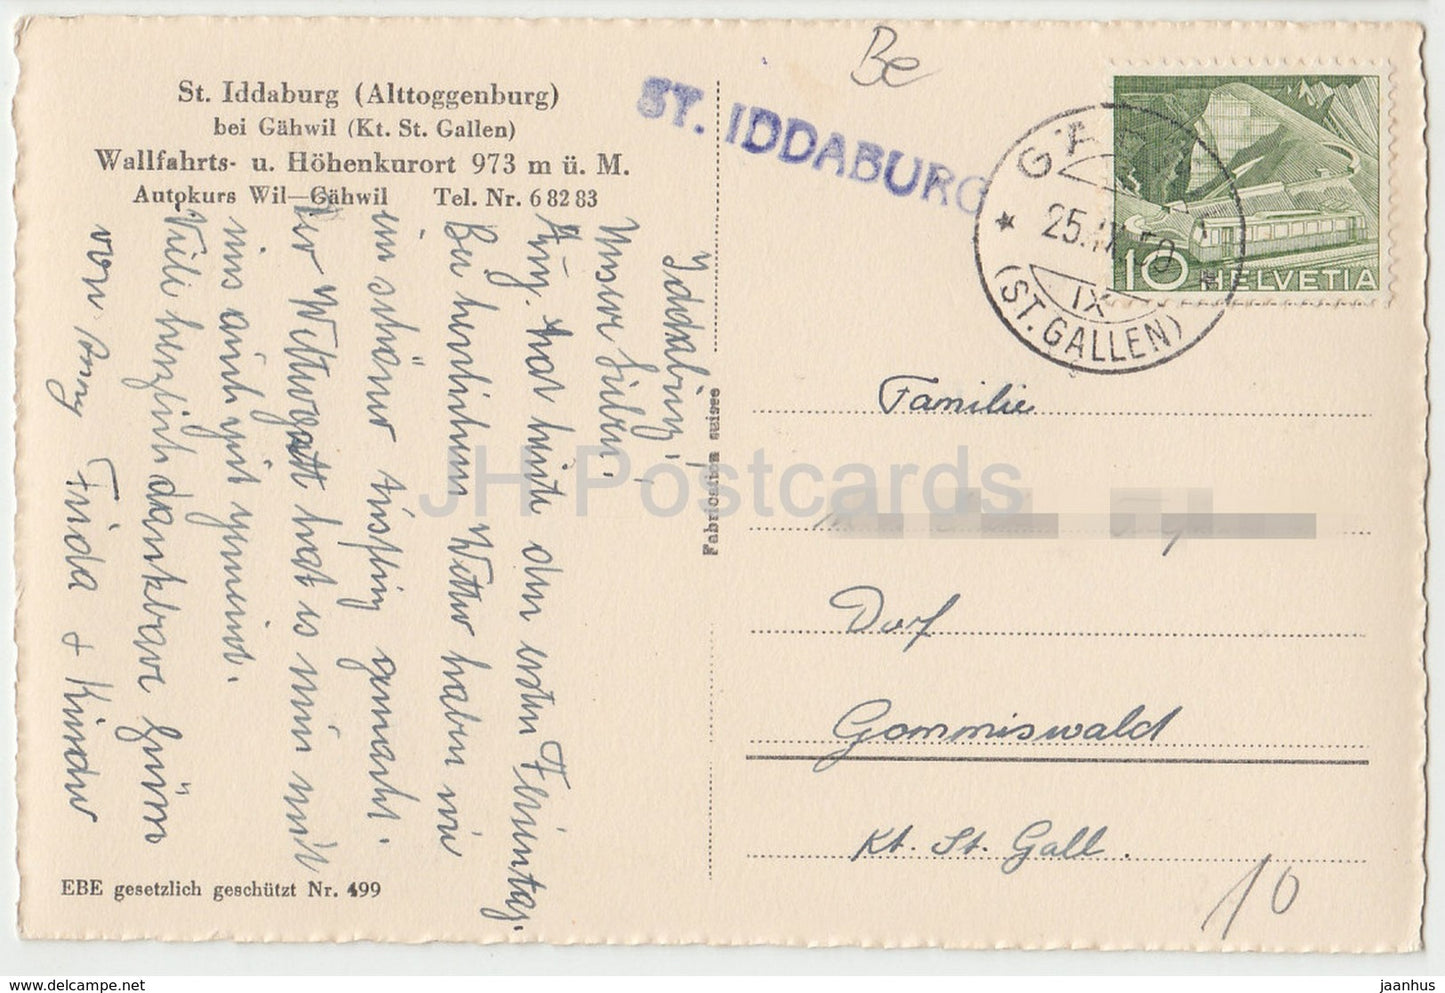 St. Iddaburg (Alttoggenburg)
bei Gähwil (Kt. St. Gallen)
Wallfahrts- u. Höhenkurort 973 m ü. M.
Autokurs Wil—Gähwil Tel. Nr. 6 82 83
Iddaburg,
Unsere Lieben!
Anny. hat heute den ersten Ferientag.
Bei herrlichem Wetter haben wir
ein schöner Ausflug gemacht.
Der Wettergott hat es nun mit
uns auch gut gemeint.
Viele herzlich dankbare Grüsse
von Anny Frida + Kinder
EBE gesetzlich geschützt Nr. 499
Fabrication suisse
Be
ST. IDDABURG
GÄHWIL
25. 50
IX
(ST. GALLEN)
10 HELVETIA
Familie
Dorf
Gommiswald
Kt. St. Gall.
10
JH Postcards
www.delcampe.net
jaanhus